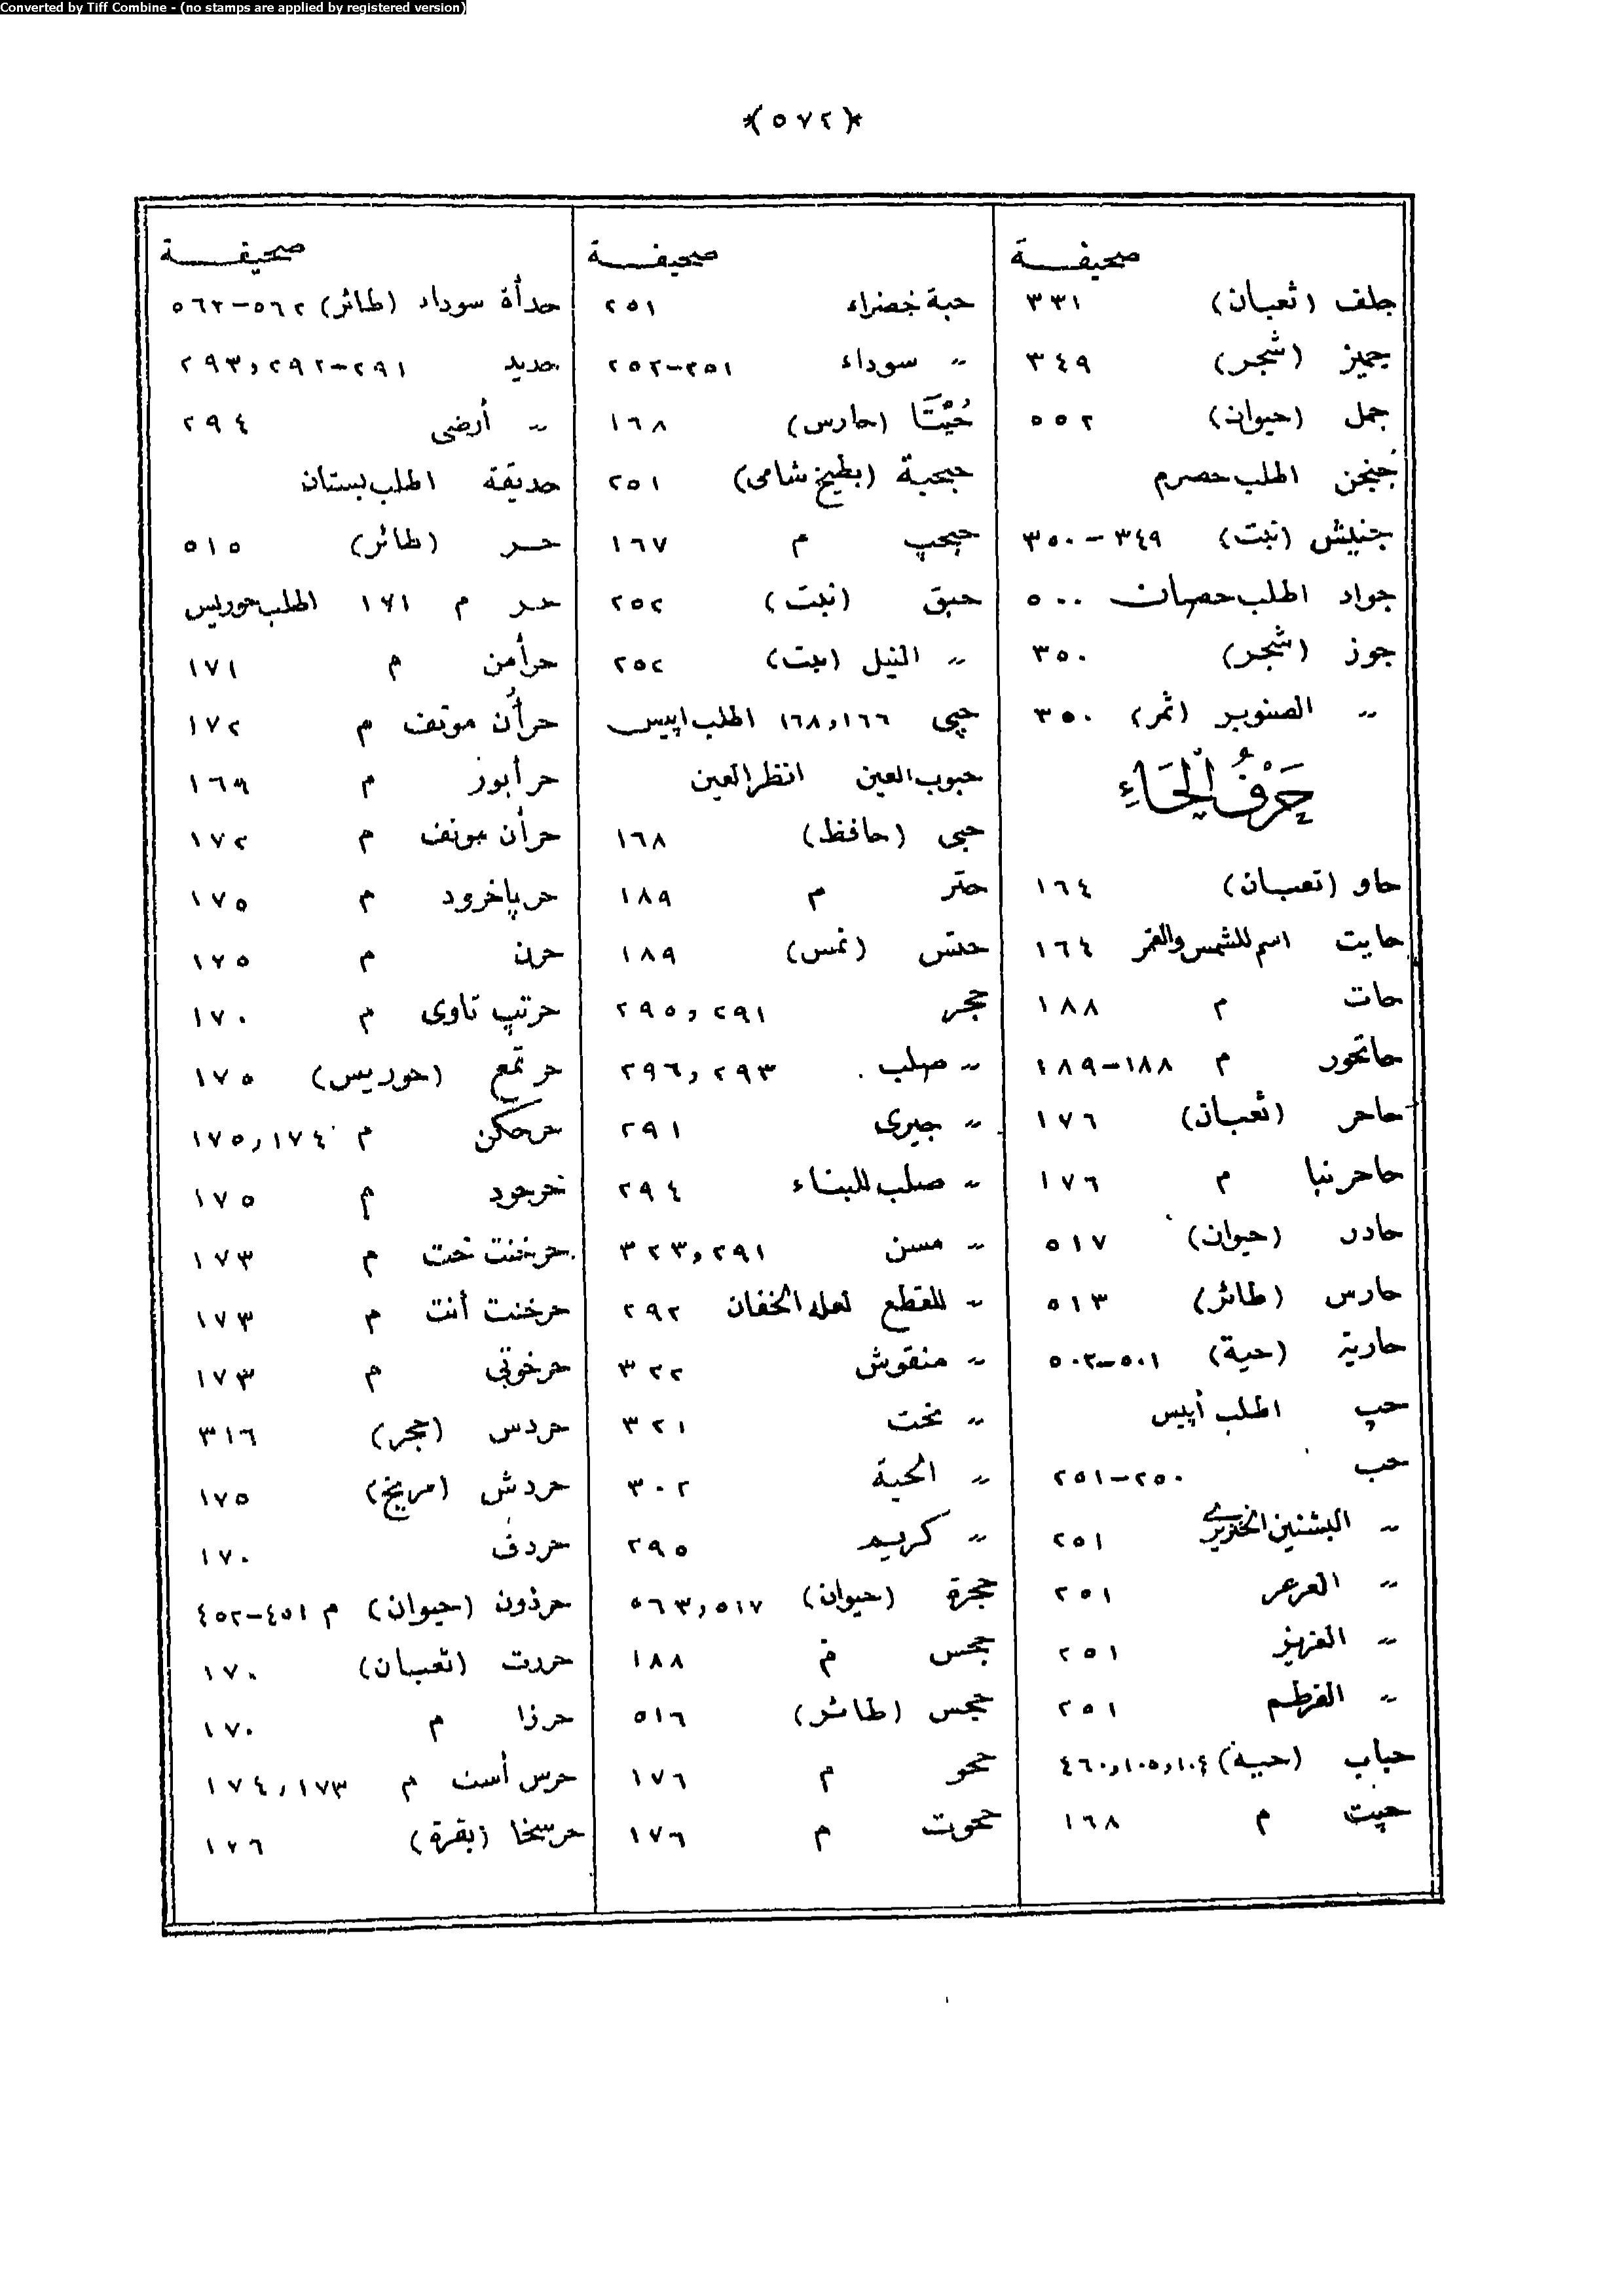 Converted by Tiff Combine - (no stamps are applied by registered version)
*(٥٧٢)*
صحيفة
جلف (ثعبان) ٣٣١
جميز (شجر) ٣٤٩
جمل (حيوان) ٥٥٢
جنجن اطلب حصرم
جنيش (نبت) ٣٤٩-٣٥٠
جواد اطلب حصان ٥٠٠
جوز (شجر) ٣٥٠
〃 الصنوبر (ثمر) ٣٥٠
حَرْفُ الْحَاءِ
حاو (ثعبان) ١٦٤
حايت اسم للشمس والقمر ١٦٤
حات م ١٨٨
حاتحور م ١٨٨-١٨٩
حاحر (ثعبان) ١٧٦
حاحرنبا م ١٧٦
حادر (حيوان) ٥١٧
حارس (طائر) ٥١٣
حارية (حية) ٥٠١-٥٠٢
حپ اطلب أپيس
حب ٢٥٠-٢٥١
〃 البشنين الخنزيرى ٢٥١
〃 العرعر ٢٥١
〃 القرطم ٢٥١
حباب (حية) ١٠٤,١٠٥,٤٦٠
حپت م ١٦٨
صحيفة
حبة خضراء ٢٥١
〃 سوداء ٢٥١-٢٥٢
(حارس) ١٦٨
حبحبة (بطيخ شامى) ٢٥١
حپحپ م ١٦٧
حبق (نبت) ٢٥٢
〃 النيل (نبت) ٢٥٢
حپى ١٦٦,١٦٨ اطلب اپيس
حبوب العين انظر العين
حبى (حافظ) ١٦٨
حتر م ١٨٩
حتس (نمس) ١٨٩
حجر ٢٩١,٢٩٥
〃 صلب ٢٩٣,٢٩٦
〃 جيرى ٢٩١
〃 صلب للبناء ٢٩٤
〃 مسن ٢٩١,٣٢٣
〃 للقطع لعله الخفان ٢٩٢
〃 منقوش ٣٢٢
〃 نحت ٣٢١
〃 الحية ٣٠٢
〃 كريم ٢٩٥
حجرة (حيوان) ٥١٧,٥٦٣
حجس م ١٨٨
حجس (طائر) ٥١٦
حجو م ١٧٦
حجوت م ١٧٦
صحيفة
حدأة سوداء (طائر) ٥٦٢-٥٦٣
حديد ٢٩١-٢٩٢,٢٩٣
〃 أرضى ٢٩٤
حديقة اطلب بستان
حر (طائر) ٥١٥
حر م ١٧١ اطلب حوريس
حرأمن م ١٧١
حرأن موتف م ١٧٢
حرأبوز م ١٦٩
حرأن موتف م ١٧٢
حرپاخرود م ١٧٥
حرن م ١٧٥
حرتپ تاوى م ١٧٠
حر تمع (حوريس) ١٧٥
حرحكن م ١٧٤,١٧٥
م ١٧٥
حرخنت خت م ١٧٣
حرخنت أنت م ١٧٣
حرخوتى م ١٧٣
حردس (حجر) ٣١٦
حردش (مريخ) ١٧٥
حردف ١٧٠
حرذون (حيوان) م ٤٥١-٤٥٢
حررت (ثعبان) ١٧٠
حرزا م ١٧٠
حرس أست م ١٧٣,١٧٤
حرسخا (بقرة) ١٧٦